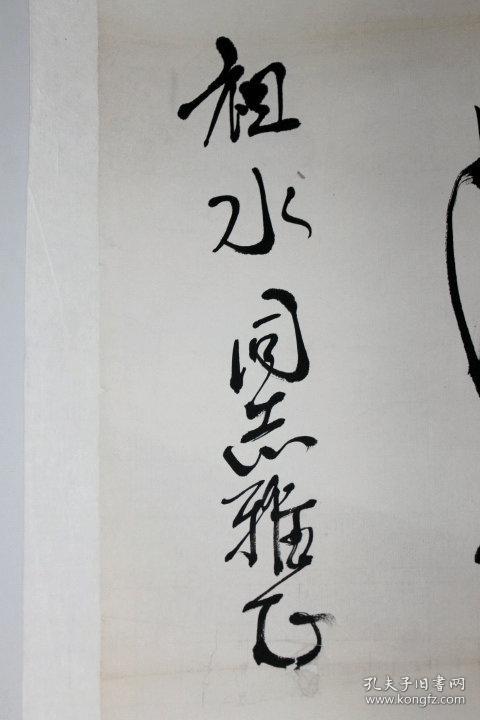 祖水同志雅正
孔夫子旧书网
www.kongfz.com